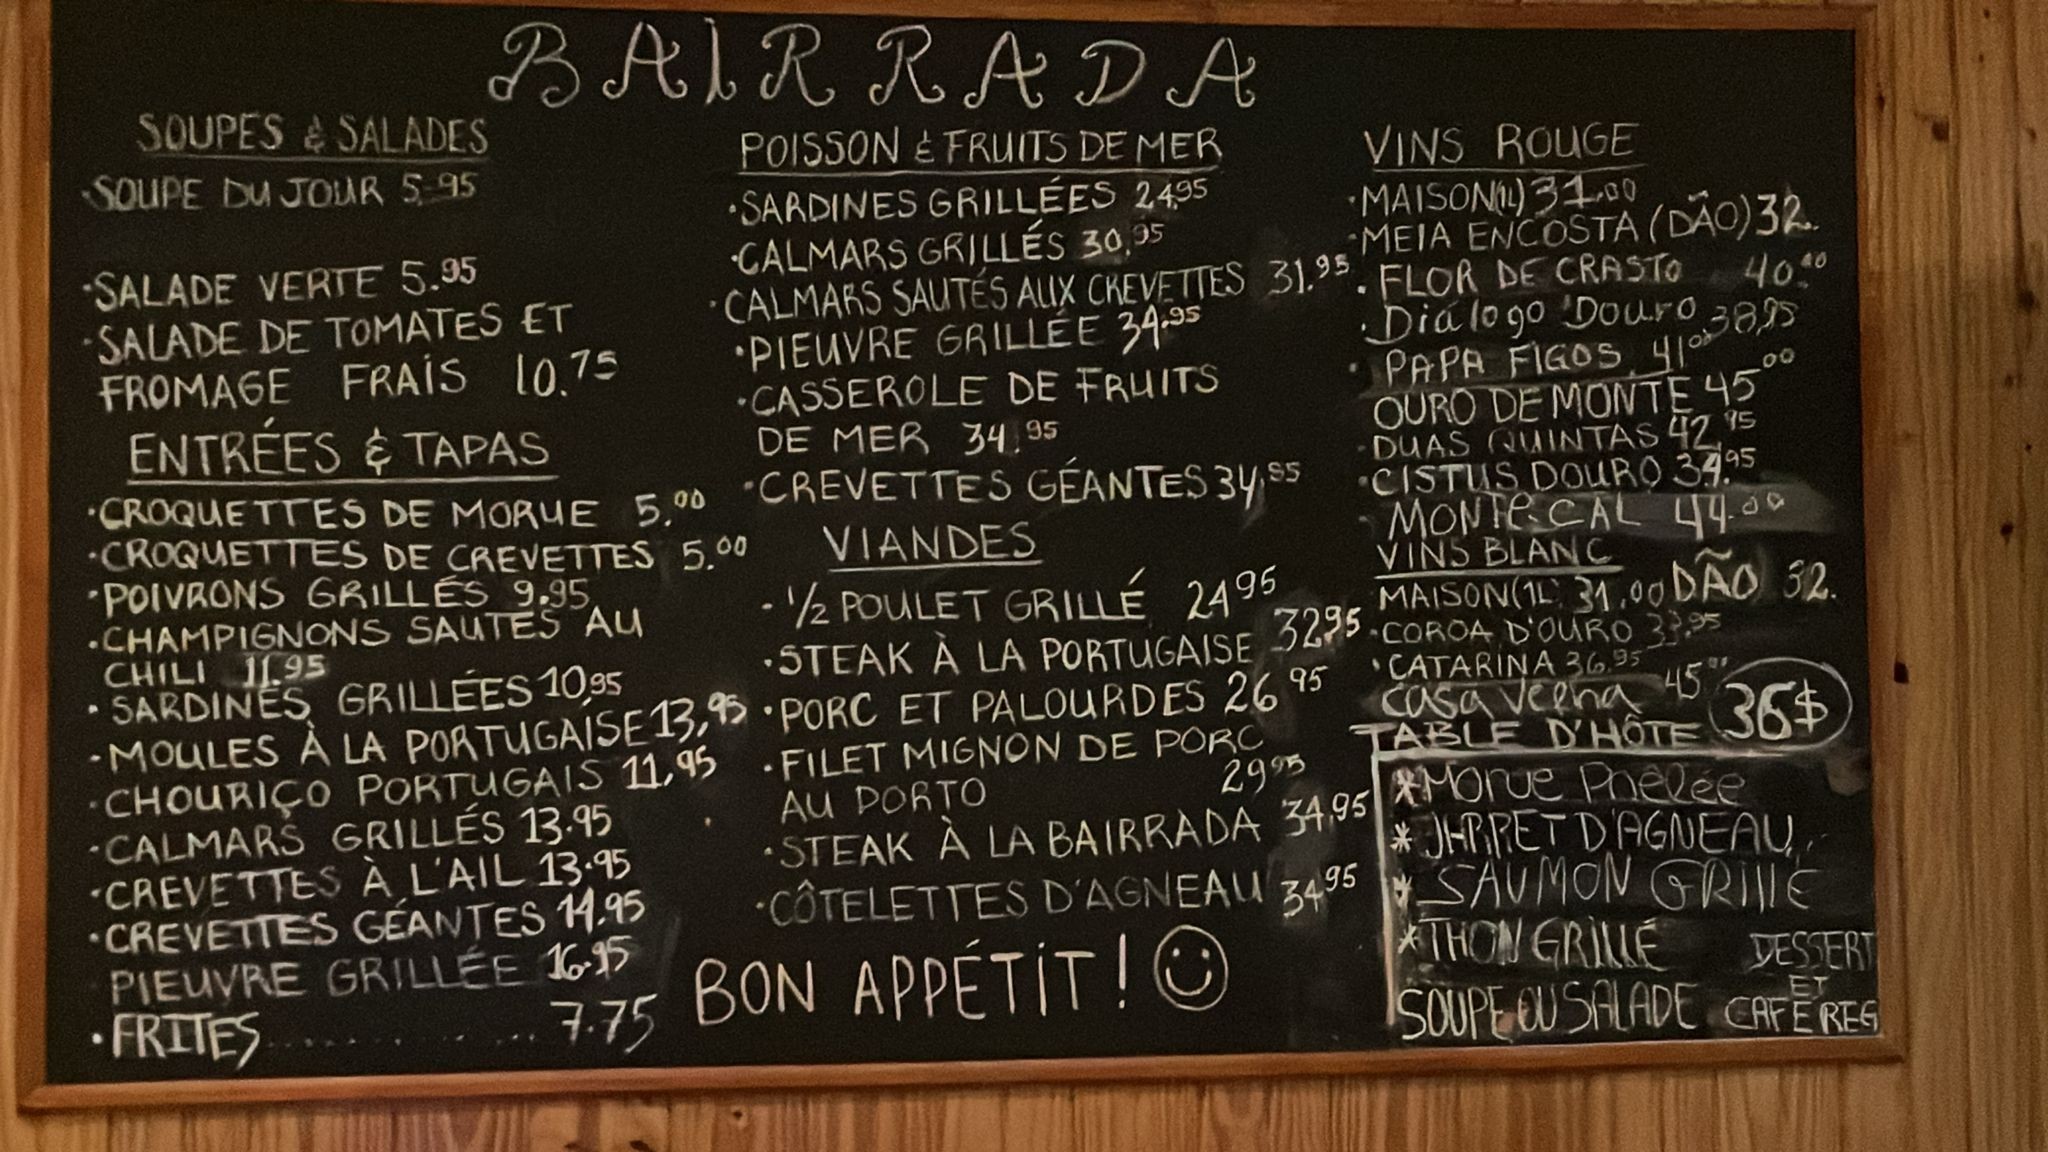 BAIRRADA
SOUPES & SALADES
·SOUPE DU JOUR 5.95
·SALADE VERTE 5.95
·SALADE DE TOMATES ET
FROMAGE FRAIS 10.75
ENTRÉES & TAPAS
·CROQUETTES DE MORUE 5.00
·CROQUETTES DE CREVETTES 5.00
·POIVRONS GRILLÉS 9.95
·CHAMPIGNONS SAUTÉS AU
CHILI 11.95
·SARDINES GRILLÉES 10,95
·MOULES À LA PORTUGAISE 13,95
·CHOURIÇO PORTUGAIS 11,95
·CALMARS GRILLÉS 13.95
·CREVETTES À L'AIL 13.95
·CREVETTES GÉANTES 14.95
PIEUVRE GRILLÉE 16.95
·FRITES............7.75
POISSON & FRUITS DE MER
·SARDINES GRILLÉES 24,95
·CALMARS GRILLÉS 30,95
·CALMARS SAUTÉS AUX CREVETTES 31.95
·PIEUVRE GRILLÉE 34.95
·CASSEROLE DE FRUITS
DE MER 34.95
·CREVETTES GÉANTES 34,95
VIANDES
·1/2 POULET GRILLÉ 24 95
·STEAK À LA PORTUGAISE 32,95
·PORC ET PALOURDES 26 95
·FILET MIGNON DE PORC
AU PORTO 29 95
·STEAK À LA BAIRRADA 34.95
·CÔTELETTES D'AGNEAU 34 95
BON APPÉTIT!
VINS ROUGE
·MAISON(1L) 31.00
·MEIA ENCOSTA (DÃO) 32.
·FLOR DE CRASTO 40.00
·Diálogo Douro 38,95
·PAPA FIGOS 41 00
OURO DE MONTE 45 00
·DUAS QUINTAS 42 95
·CISTUS DOURO 34.95
MONTE CAL 44.00
VINS BLANC
MAISON(1L) 31.00 DÃO 32.
·COROA D'OURO 33.95
·CATARINA 36.95
casa 45
TABLE D'HÔTE 36$
*Morue Poêlée
*JARRET D'AGNEAU
*SAUMON GRILLÉ
*THON GRILLÉ
SOUPE OU SALADE
DESSERT
ET
CAFÉ REG